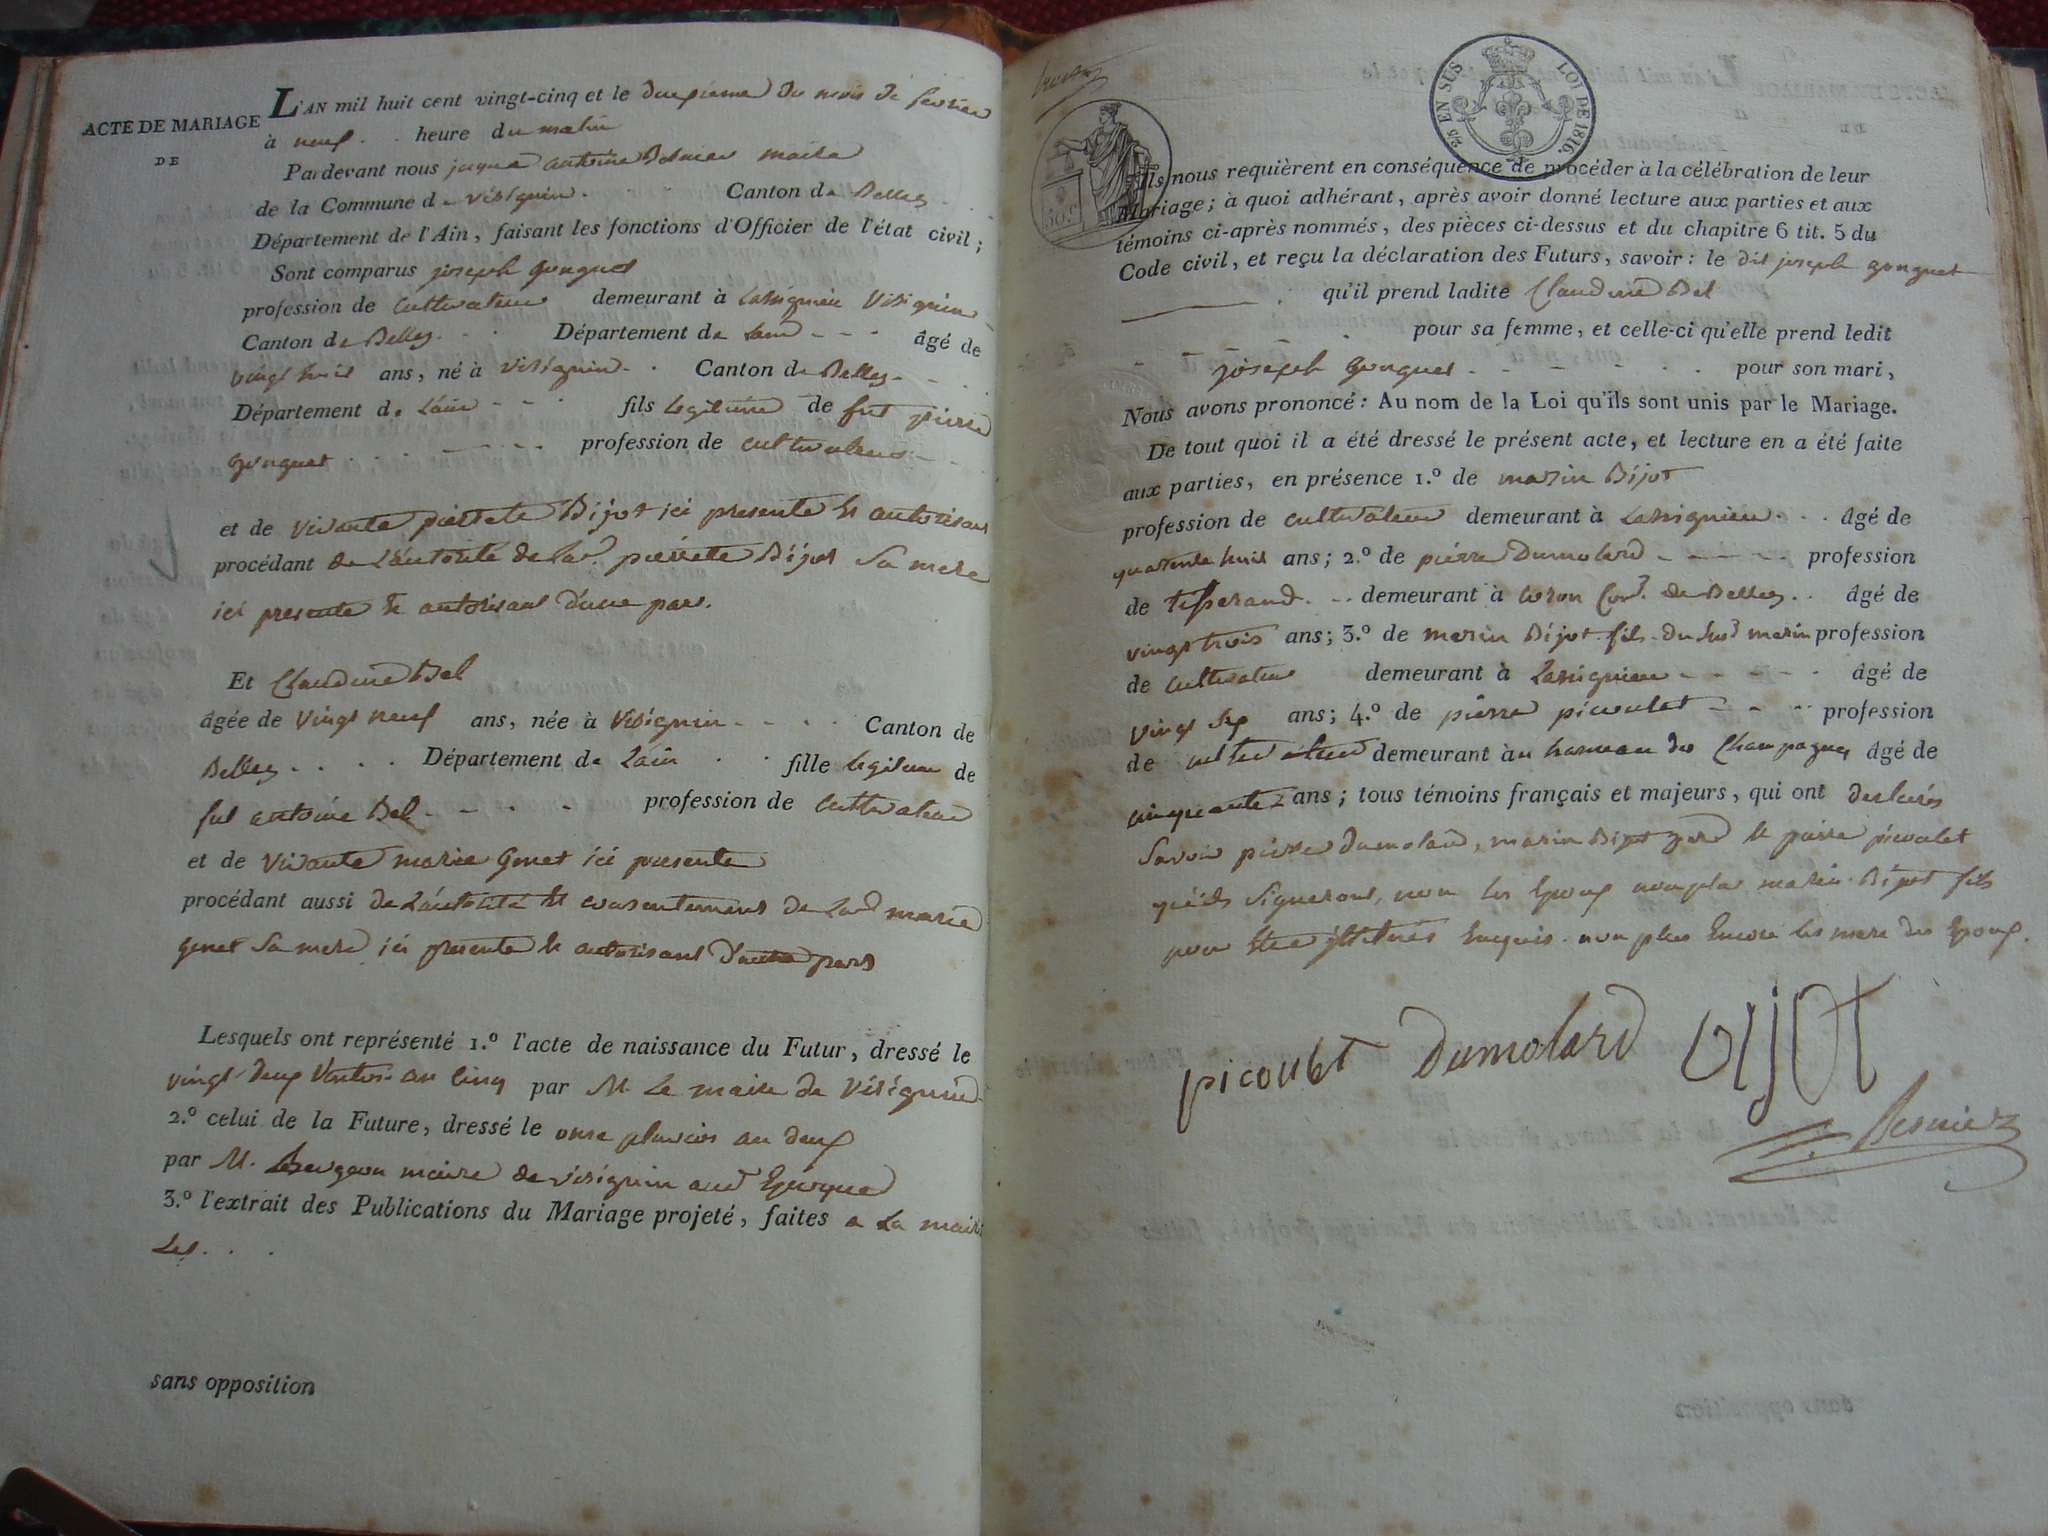 ACTE DE MARIAGE
DE
L'AN mil huit cent vingt-cinq et le deuxieme du mois de fevrier
à neuf heure du matin
Pardevant nous jaques antoine Besnier maire
de la Commune de virignin Canton de Belley
Département de l'Ain, faisant les fonctions d'Officier de l'état civil;
Sont comparus joseph gonguet
profession de cultivateur demeurant à Lassignieu virignin
Canton de Belley Département de Lain âgé de
vingt huit ans, né à virignin Canton de Belley
Département de Lain fils legitime de fut pierre
gonguet profession de cultivateur
et de vivante pierrete Bijot ici presente et autorisant
procédant de L'autorité de lad. pierrete Bijot sa mere
ici presente et autorisant d'une part.
Et Claudine Bel
âgée de vingt neuf ans, née à virignin Canton de
Belley Département de Lain fille legitime de
fut antoine Bel profession de cultivateur
et de vivante marie genet ici presente
procédant aussi de L'autorité et consentement de Lad marie
genet sa mere ici presente et autorisant d'autre part
Lesquels ont représenté 1.º l'acte de naissance du Futur, dressé le
vingt deux Ventos an cinq par M. Le maire de virignin
2.º celui de la Future, dressé le onse pluvios an deux
par M. Bergeon maire de virignin aud Epoque
3.º l'extrait des Publications du Mariage projeté, faites a La mairie
Les
sans opposition
30 C
2/5 EN SUS LOI DE 1816.
Ils nous requièrent en conséquence de procéder à la célébration de leur
Mariage; à quoi adhérant, après avoir donné lecture aux parties et aux
témoins ci-après nommés, des pièces ci-dessus et du chapitre 6 tit. 5 du
Code civil, et reçu la déclaration des Futurs, savoir: le dit joseph gonguet
qu'il prend ladite Claudine Bel
pour sa femme, et celle-ci qu'elle prend ledit
joseph gonguet pour son mari,
Nous avons prononcé: Au nom de la Loi qu'ils sont unis par le Mariage.
De tout quoi il a été dressé le présent acte, et lecture en a été faite
aux parties, en présence 1.º de marin Bijot
profession de cultivateur demeurant à Lassignieu âgé de
quarente huit ans; 2.º de pierre Dumolard profession
de tisserand demeurant à coron Con. de Belley âgé de
vingt trois ans; 3.º de marin Bijot fils du susd marin profession
de cultivateur demeurant à Lassignieu âgé de
vingt six ans; 4.º de pierre picoulet profession
de cultivateur demeurant àu hameau des Champagnes âgé de
cinquante ans; tous témoins français et majeurs, qui ont declarés
Savoir pierre dumolard, marin Bijot pere et pierre picoulet
qu'ils signeront, non les Epoux non plus marin Bijot fils
pour etre illitérés Enquis non plus Encore les mere des Epoux.
picoulet Dumolard bijot
Besnier